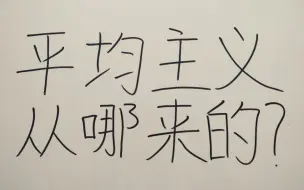 平均主义
从哪来的?